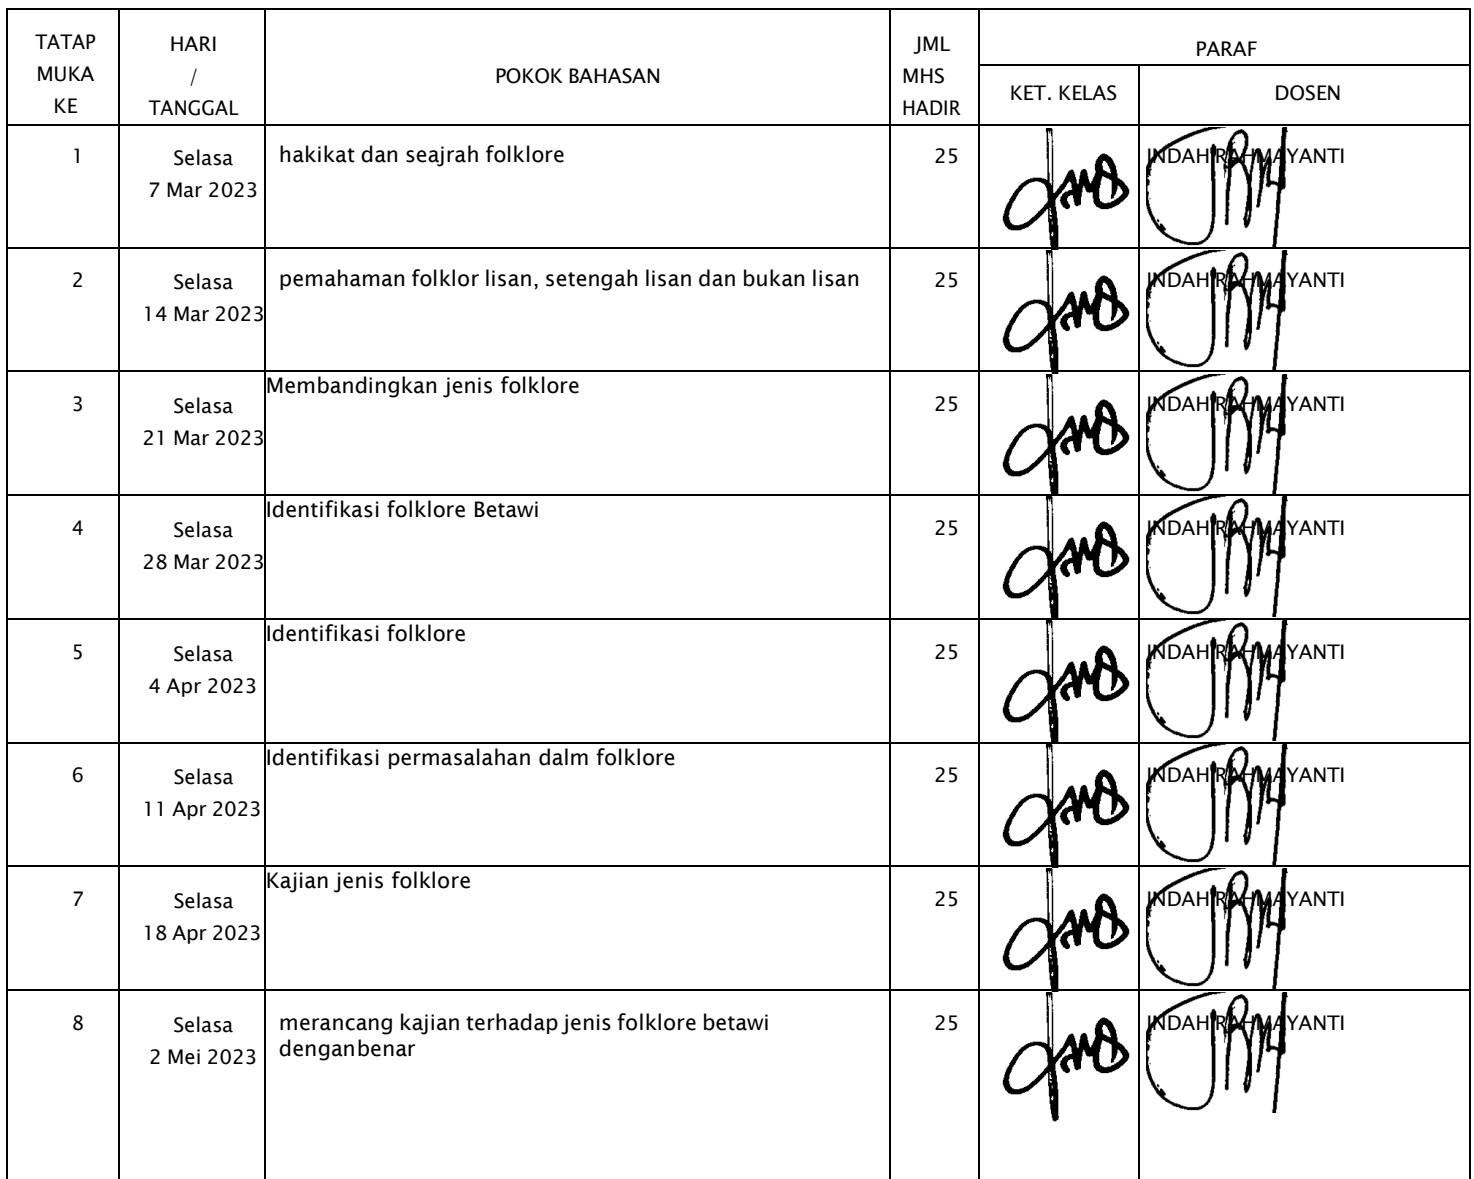 TATAP MUKA KE
HARI / TANGGAL
POKOK BAHASAN
JML MHS HADIR
PARAF
KET. KELAS
DOSEN
1
Selasa
7 Mar 2023
hakikat dan seajrah folklore
25
INDAH RAHMAYANTI
2
Selasa
14 Mar 2023
pemahaman folklor lisan, setengah lisan dan bukan lisan
25
INDAH RAHMAYANTI
3
Selasa
21 Mar 2023
Membandingkan jenis folklore
25
INDAH RAHMAYANTI
4
Selasa
28 Mar 2023
Identifikasi folklore Betawi
25
INDAH RAHMAYANTI
5
Selasa
4 Apr 2023
Identifikasi folklore
25
INDAH RAHMAYANTI
6
Selasa
11 Apr 2023
Identifikasi permasalahan dalm folklore
25
INDAH RAHMAYANTI
7
Selasa
18 Apr 2023
Kajian jenis folklore
25
INDAH RAHMAYANTI
8
Selasa
2 Mei 2023
merancang kajian terhadap jenis folklore betawi
denganbenar
25
INDAH RAHMAYANTI